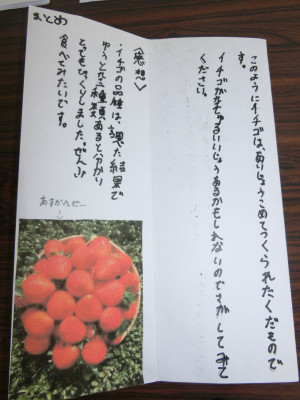 このようにイチゴは、あいじょうこめてつくられたくだもので
す。
イチゴがなぜ
かもしれないのでさがしてみて
ください。
まとめ
〈感想〉
・イチゴの品種は、調べた結果で
種類あると分かり
とてもびっくりしました。ぜんぶ
食べてみたいです。
あすかルビー